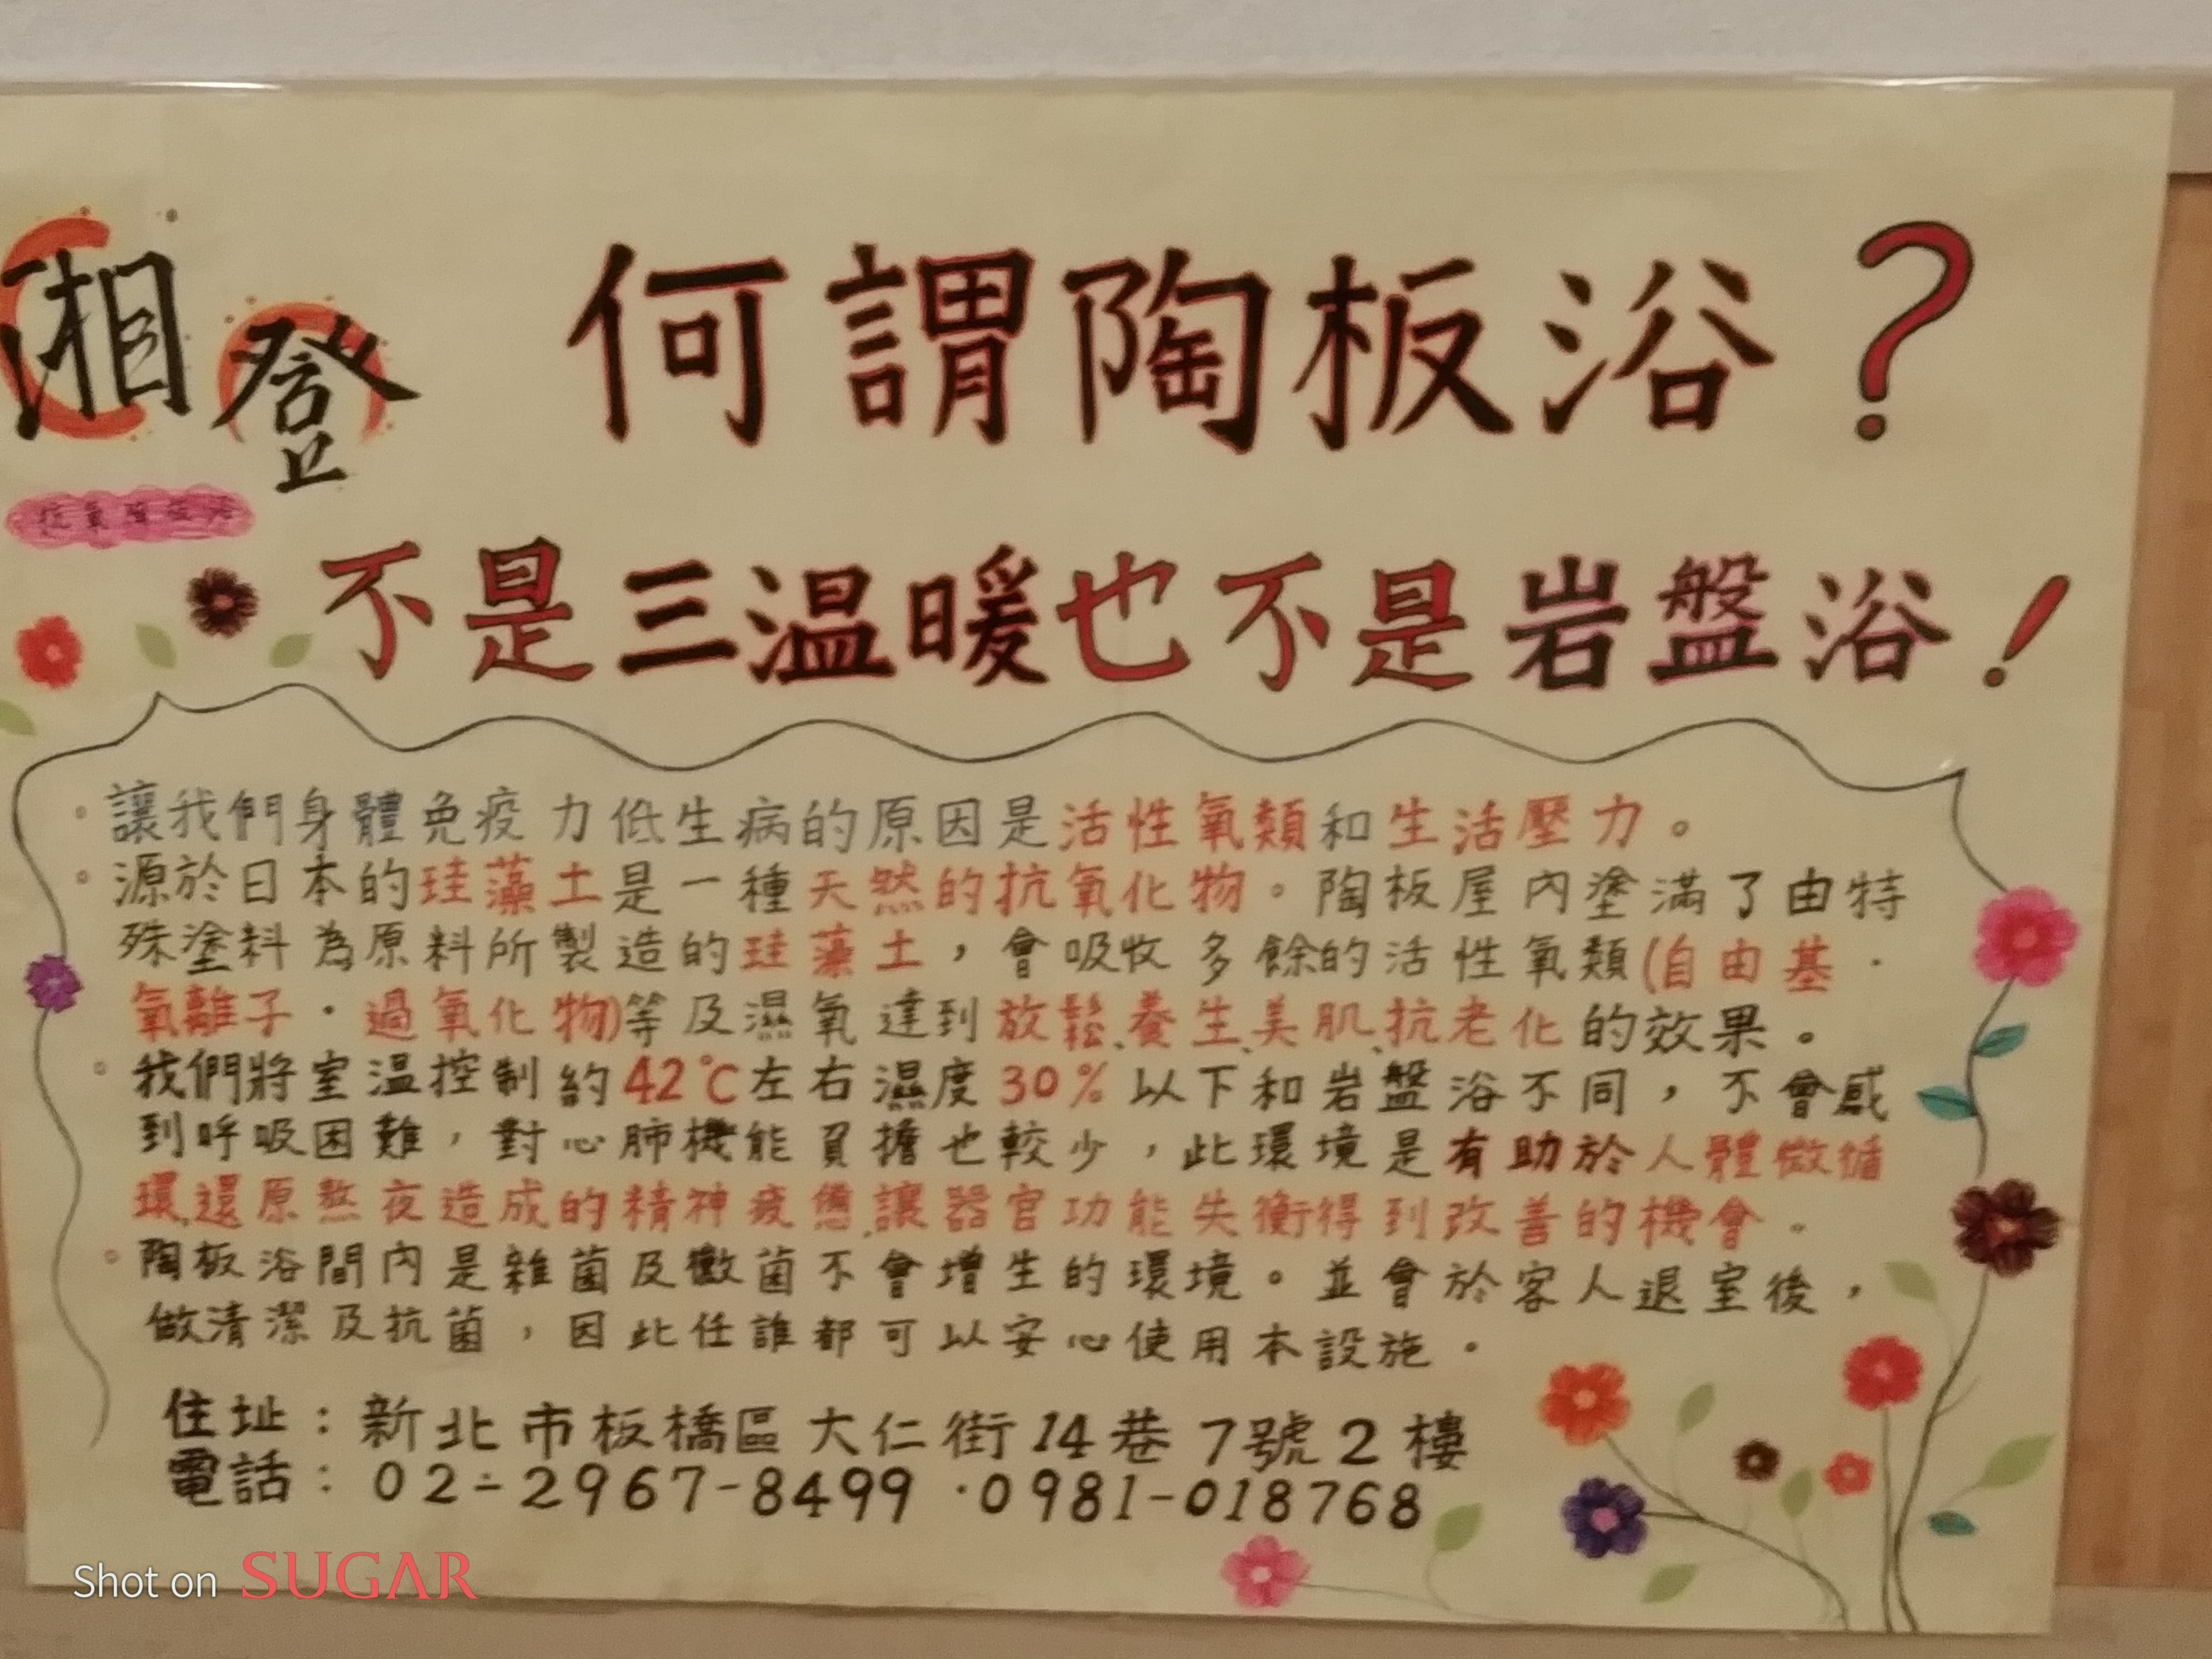 湘登
何謂陶板浴？
抗氧陶板浴
不是三温暖也不是岩盤浴！
。讓我們身體免疫力低生病的原因是活性氧類和生活壓力。
。源於日本的珪藻土是一種天然的抗氧化物。陶板屋內塗滿了由特
殊塗料為原料所製造的珪藻土，會吸收多餘的活性氧類(自由基．
氧離子．過氧化物)等及濕氧達到放鬆、養生、美肌、抗老化的效果。
。我們將室溫控制約42℃左右濕度30%以下和岩盤浴不同，不會感
到呼吸困難，對心肺機能負擔也較少，此環境是有助於人體微循
環、還原熬夜造成的精神疲憊、讓器官功能失衡得到改善的機會。
。陶板浴間內是雜菌及黴菌不會增生的環境。並會於客人退室後，
做清潔及抗菌，因此任誰都可以安心使用本設施。
住址：新北市板橋區大仁街14巷7號2樓
電話：02-2967-8499．0981-018768
Shot on SUGAR